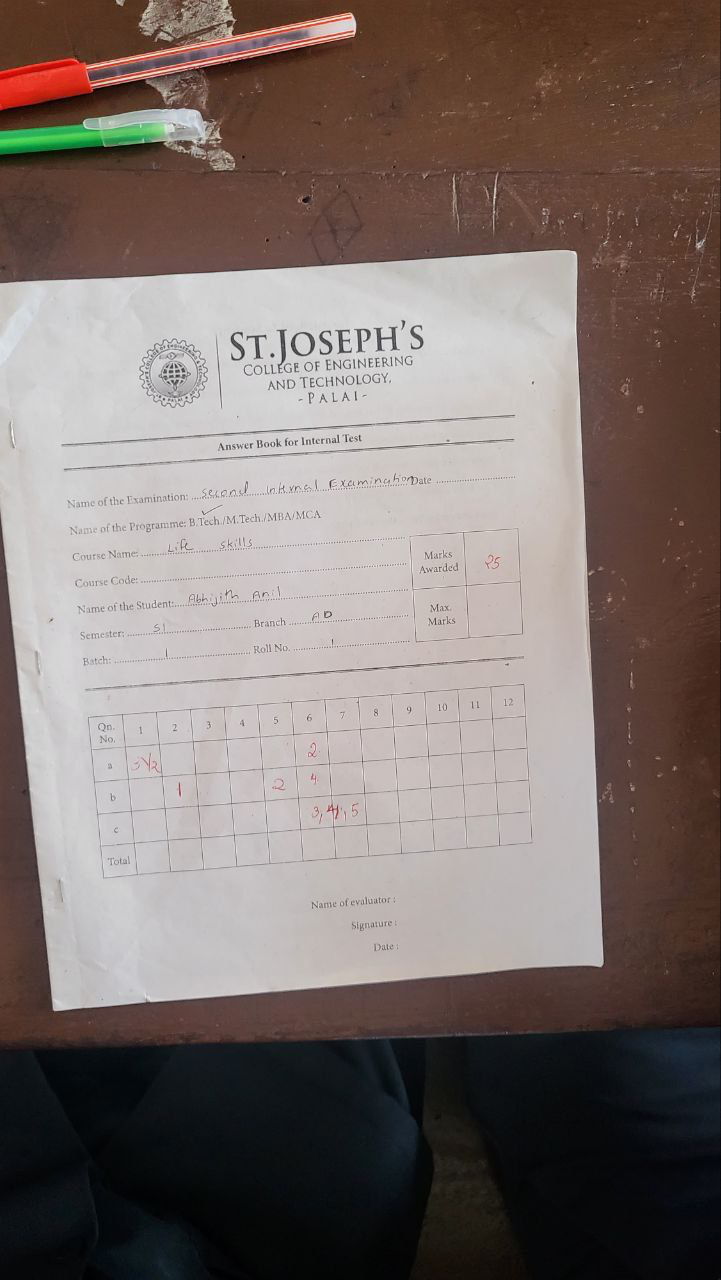 ST.JOSEPH'S
COLLEGE OF ENGINEERING
AND TECHNOLOGY,
- PALAI -
Answer Book for Internal Test
Name of the Examination: Second Internal Examination Date
Name of the Programme: B.Tech./M.Tech./MBA/MCA
Course Name: Life skills
Marks Awarded 25
Course Code:
Name of the Student: Abhijith Anil
Max. Marks
Semester: S1 Branch AD
Batch: 1 Roll No. 1
Qn. No. 1 2 3 4 5 6 7 8 9 10 11 12
a 3½ 2
b 1 2 4
c 3, 5
Total
Name of evaluator :
Signature :
Date :